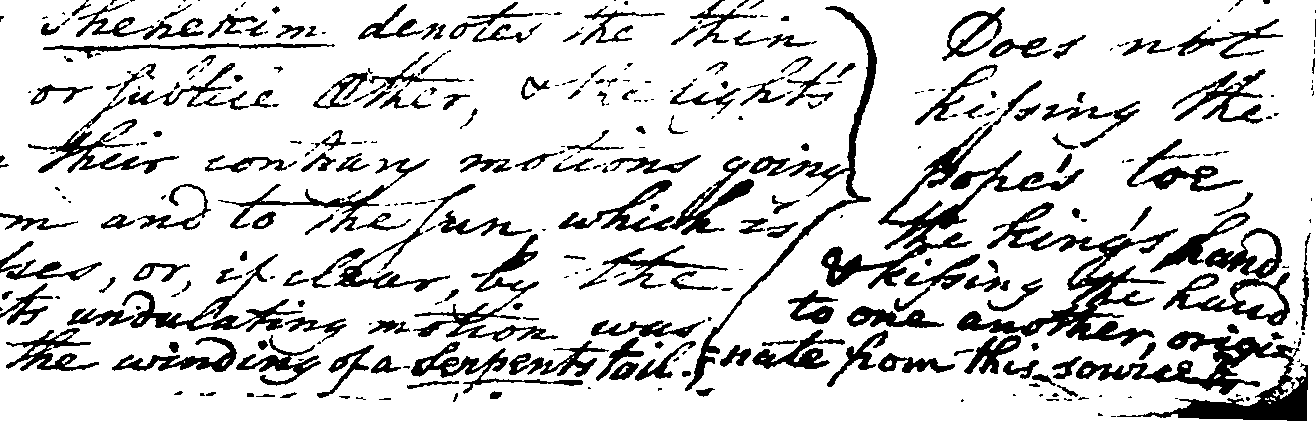 Shehekim denotes the thin
or subtile Æther, & the light's
their contrary motions going
m and to the sun, which is
lses, or, if clear, by the
its undulating motion was
the winding of a Serpents tail.
Does not
kissing the
pope's toe,
the king's hand,
& kissing the hand
to one another, origi=
nate from this source